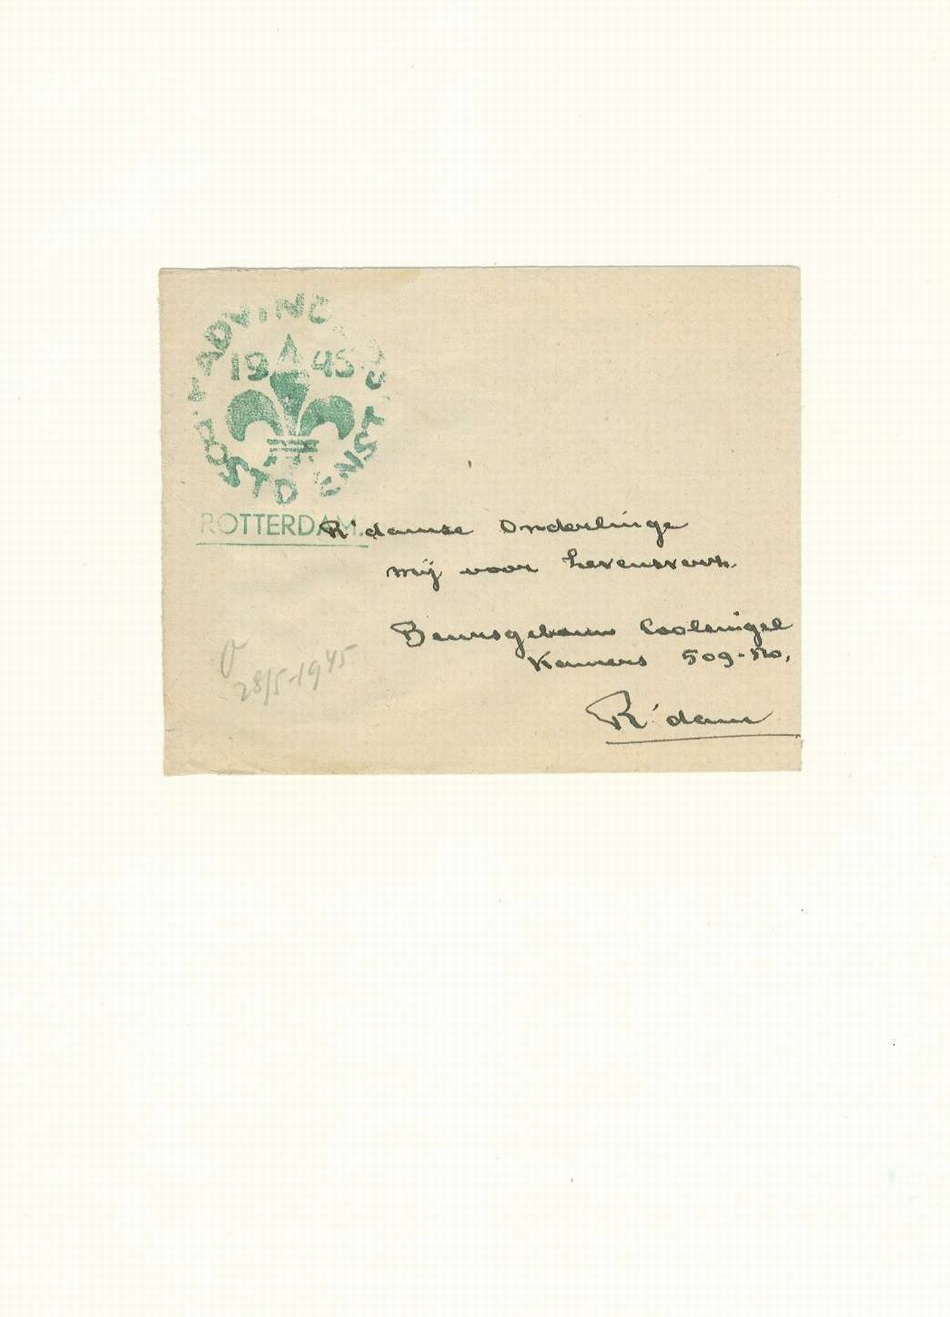 PADVINDERS
1945
POSTDIENST
ROTTERDAM.
R'damse Onderlinge
Mij voor Levensverz.
Beursgebouw Coolsingel
Kamers 509-
R'dam
28/5-1945